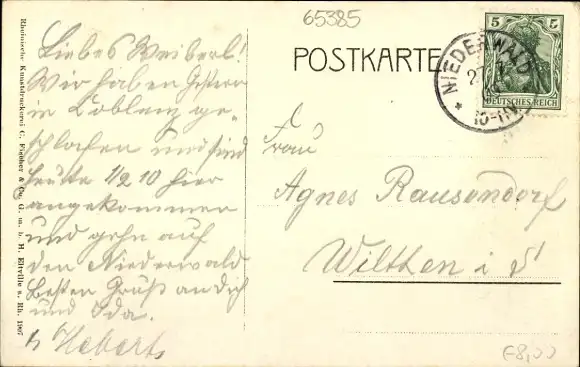 65385
POSTKARTE
5 5
DEUTSCHES REICH
NIEDERWALD
Liebes Weiberl!
Wir haben Gestern
in Coblenz ge-
schlafen und sind
heute 1/2 10 hier
angekommen
und gehn auf
den Niederwald
Besten Gruß an dich
und Ida.
Frau
Agnes Rausendorf
Wilthen i S
Rheinische Kunstdruckerei C. Fischer & Co. G. m. b. H. Eltville a. Rh. 1907
€8,00